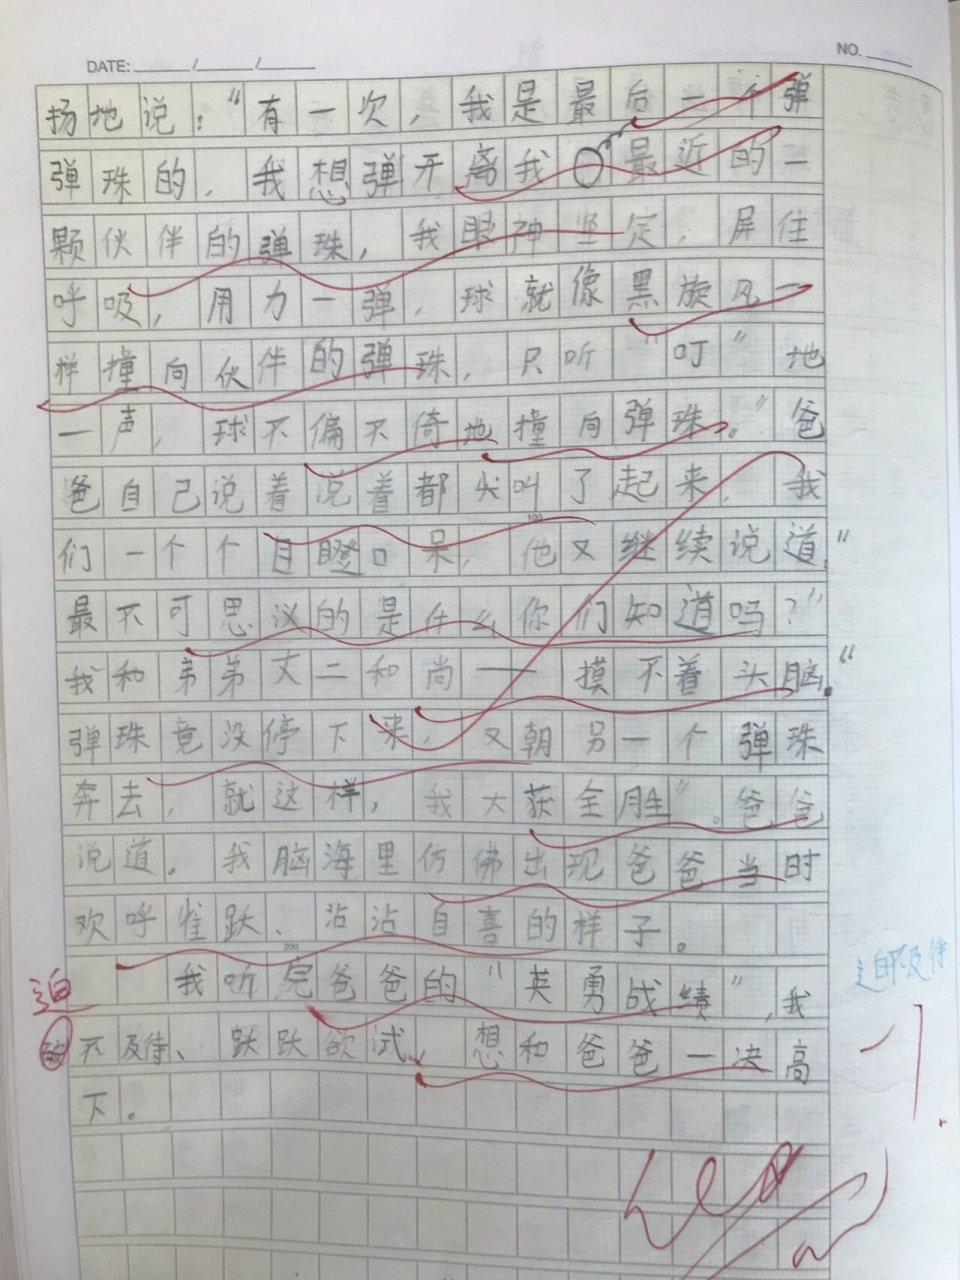 DATE: / /
NO.
扬地说:“有一次,我是最后一个弹
弹珠的,我想弹开离我最近的一
颗伙伴的弹珠,我眼神坚定,屏住
呼吸,用力一弹,球就像黑旋风一
样撞向伙伴的弹珠,只听“叮”地
一声,球不偏不倚地撞向弹珠。”爸
爸自己说着说着都尖叫了起来,我
们一个个目瞪口呆,他又继续说道,“
100
最不可思议的是什么你们知道吗?”
我和弟弟丈二和尚——摸不着头脑。“
弹珠竟没停下来,又朝另一个弹珠
奔去,就这样,我大获全胜”。爸爸
说道。我脑海里仿佛出现爸爸当时
欢呼雀跃、沾沾自喜的样子。
200
我听完爸爸的“英勇成绩”,我
迫
不及待、跃跃欲试,想和爸爸一决高
下。
迫不及待